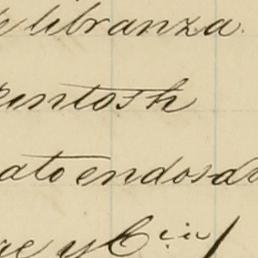 de libranza
entosh
ato endosad
y Cia